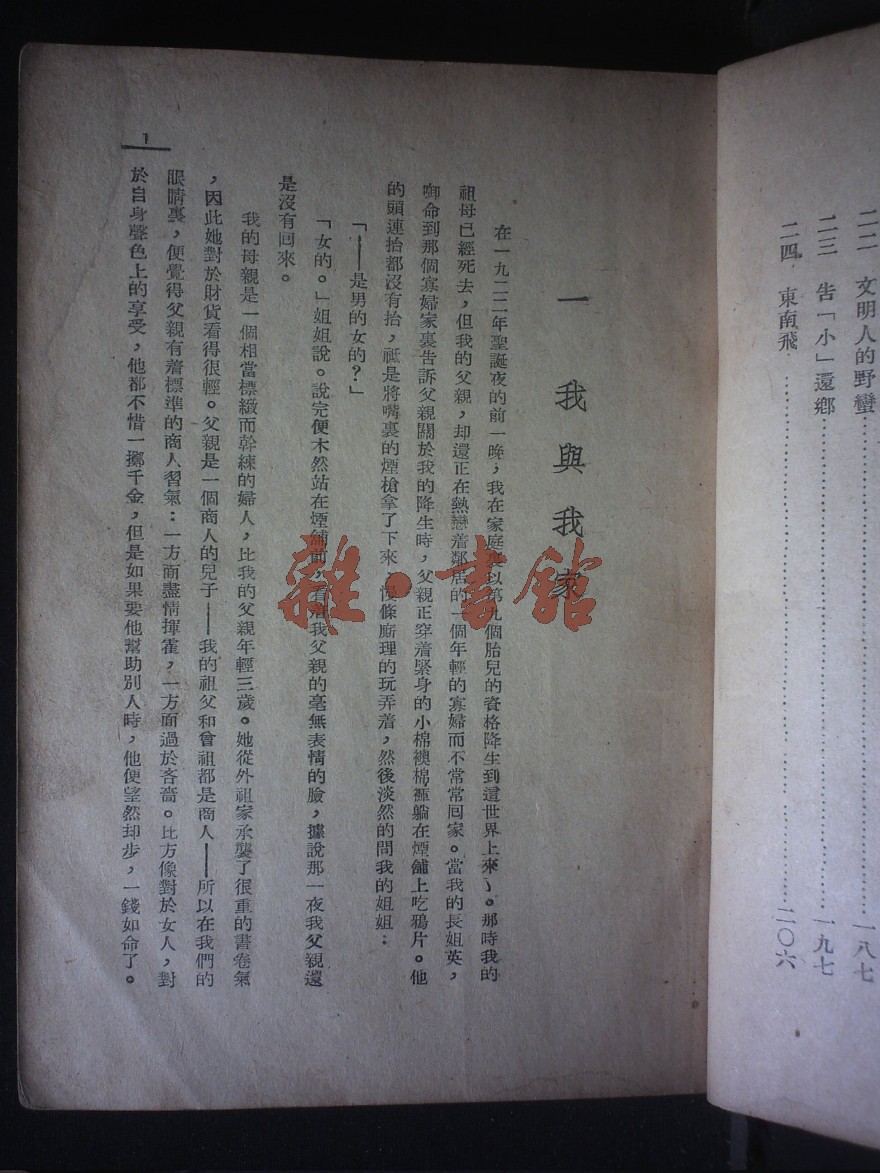 二二 文明人的野蠻……………………一八七
二三 告「小」還鄉……………………一九七
二四 東南飛……………………二〇六
一 我與我家
在一九二二年聖誕夜的前一晚，我在家庭裏以第九個胎兒的資格降生到這世界上來）。那時我的
祖母已經死去，但我的父親，却還正在熱戀着鄰居的一個年輕的寡婦而不常常回家。當我的長姐英，
啣命到那個寡婦家裏告訴父親關於我的降生時，父親正穿着緊身的小棉襖棉褲躺在煙舖上吃鴉片。他
的頭連抬都沒有抬，祗是將嘴裏的煙槍拿了下來，慢條廝理的玩弄着，然後淡然的問我的姐姐：
「——是男的女的？」
「女的。」姐姐說。說完便木然站在煙舖前，看着我父親的毫無表情的臉，據說那一夜我父親還
是沒有回來。
我的母親是一個相當標緻而幹練的婦人，比我的父親年輕三歲。她從外祖家承襲了很重的書卷氣
，因此她對於財貨看得很輕。父親是一個商人的兒子——我的祖父和曾祖都是商人——所以在我們的
眼睛裏，便覺得父親有着標準的商人習氣：一方面盡情揮霍，一方面過於吝嗇。比方像對於女人，對
於自身聲色上的享受，他都不惜一擲千金，但是如果要他幫助別人時，他便望然却步，一錢如命了。
1
雜·書館